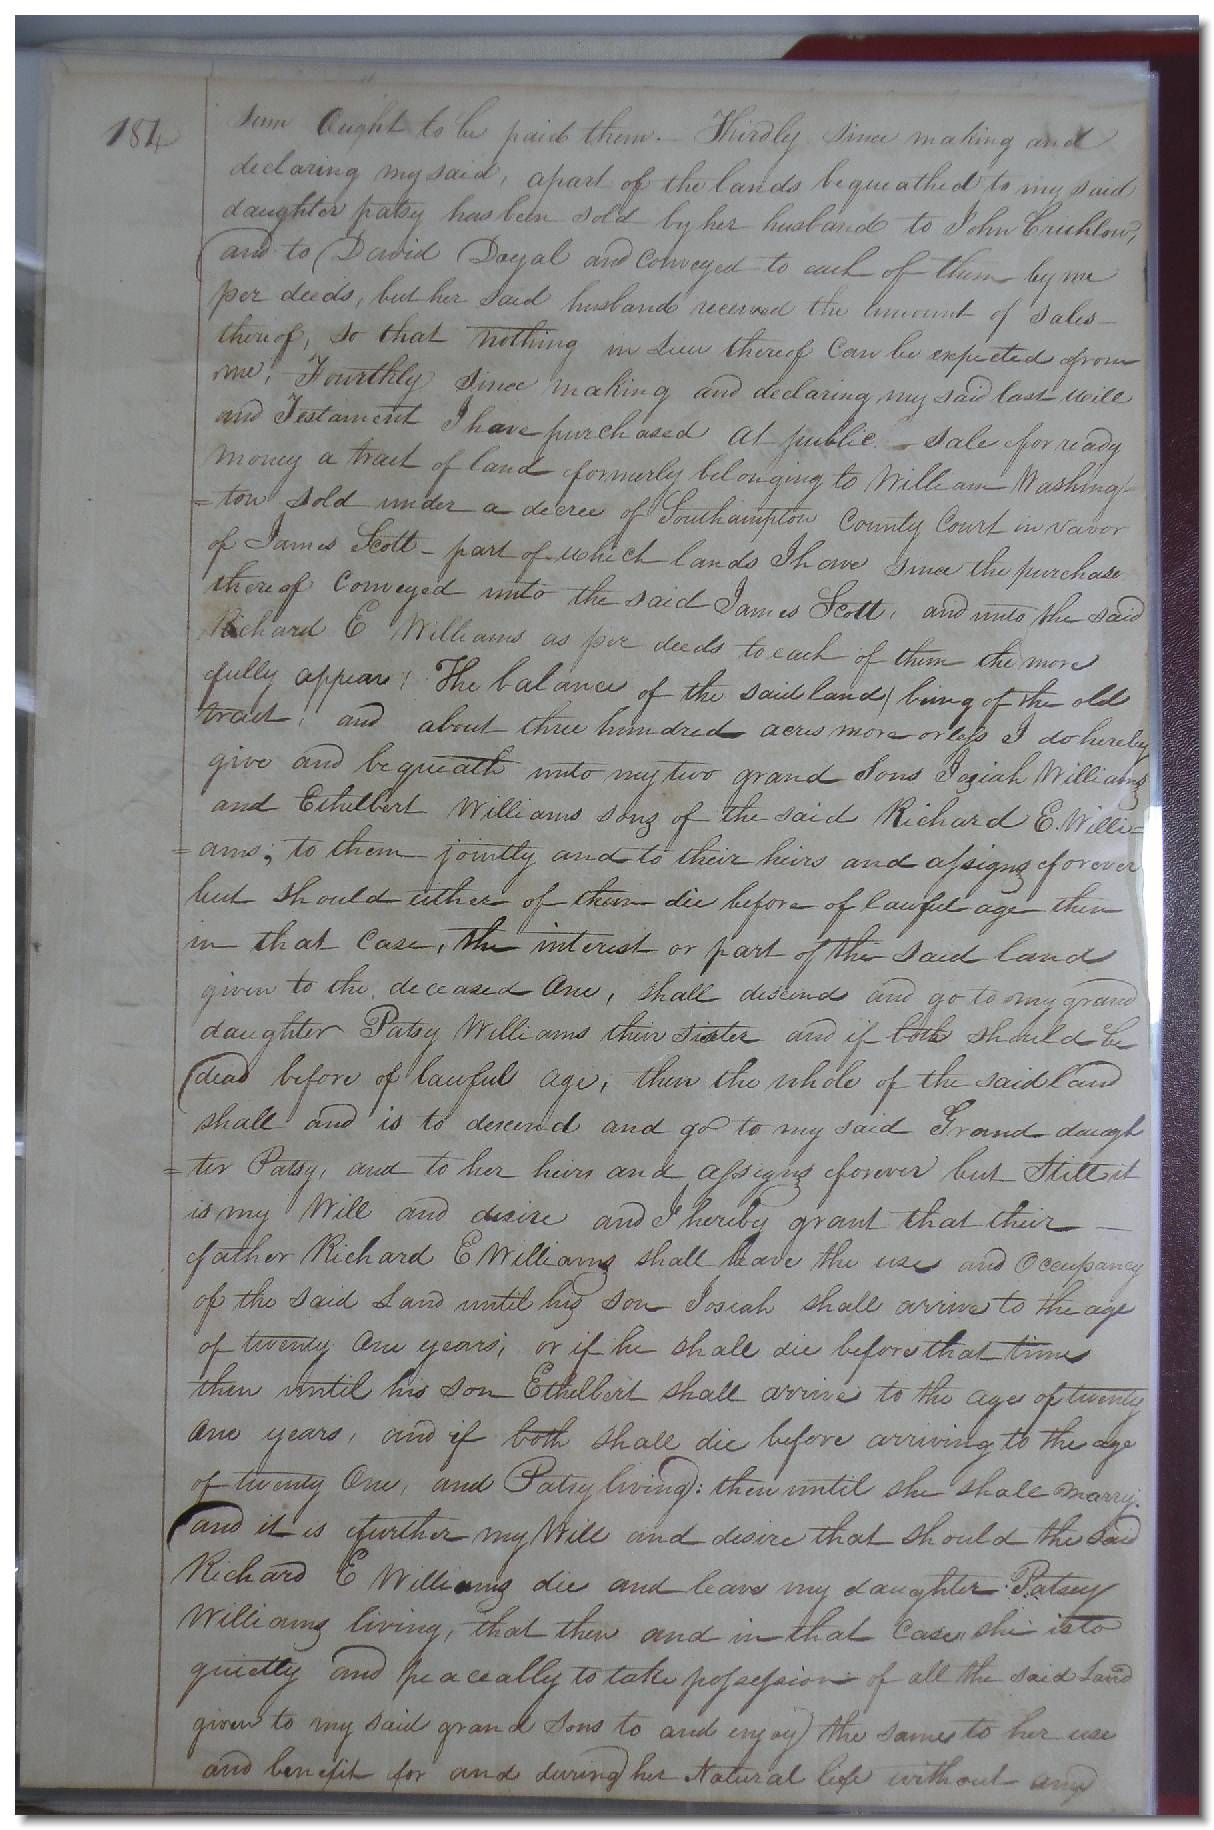 184
sum Ought to be paid them. - Thirdly since making and
declaring my said, apart of the lands bequeathed to my said
daughter patsy has been sold by her husband to John Crichlow,
and to David Doyal and conveyed to each of them by me
per deeds, but her said husband received the amount of sales -
thereof, so that nothing in lieu thereof can be expected from
me, - Fourthly since making and declaring my said last will
and Testament I have purchased at public - sale for ready
money a tract of land formerly belonging to William Washing-
=ton sold under a decree of Southampton County Court in vavor
of James Scott - part of which lands I have since the purchase
thereof conveyed unto the said James Scott, and unto the said
Richard E Williams as per deeds to each of them the more
fully appear; The balance of the said land (being of the old
tract; and about three hundred acres more or less I do hereby
give and bequeath unto my two grand Sons Josiah Williams
and Ethelbert Williams sons of the said Richard E. Willi=
=ams; to them jointly and to their heirs and assigns forever
but should either of them die before of lawful age then
in that case, the interest or part of the said land
given to the deceased One, shall descend and go to my grand
daughter Patsy Williams their sister and if both should be
dead before of lawful age, then the whole of the said land
shall and is to descend and go to my said Grand daugh
=ter Patsy, and to her heirs and assigns forever but still it
is my Will and desire and I hereby grant that their -
father Richard E Williams shall have the use and Occupancy
of the said Land until his son Josiah shall arrive to the age
of twenty One years; or if he shall die before that time
then until his son Ethelbert shall arrive to the age of twenty
One years, and if both shall die before arriving to the age
of twenty One, and Patsy living: then until she shall marry.
and it is further my Will and desire that should the said
Richard E Williams die and leave my daughter Patsey
Williams living, that then and in that case, she is to
quietly and peaceally to take possession of all the said Land
given to my said grand Sons to and enjoy the same to her use
and benefit for and during her Natural life without any